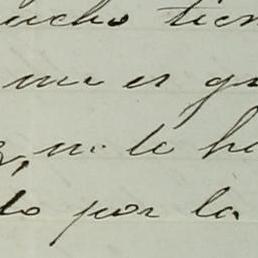 mucho tien
me es gr
, ni le ha
do por la